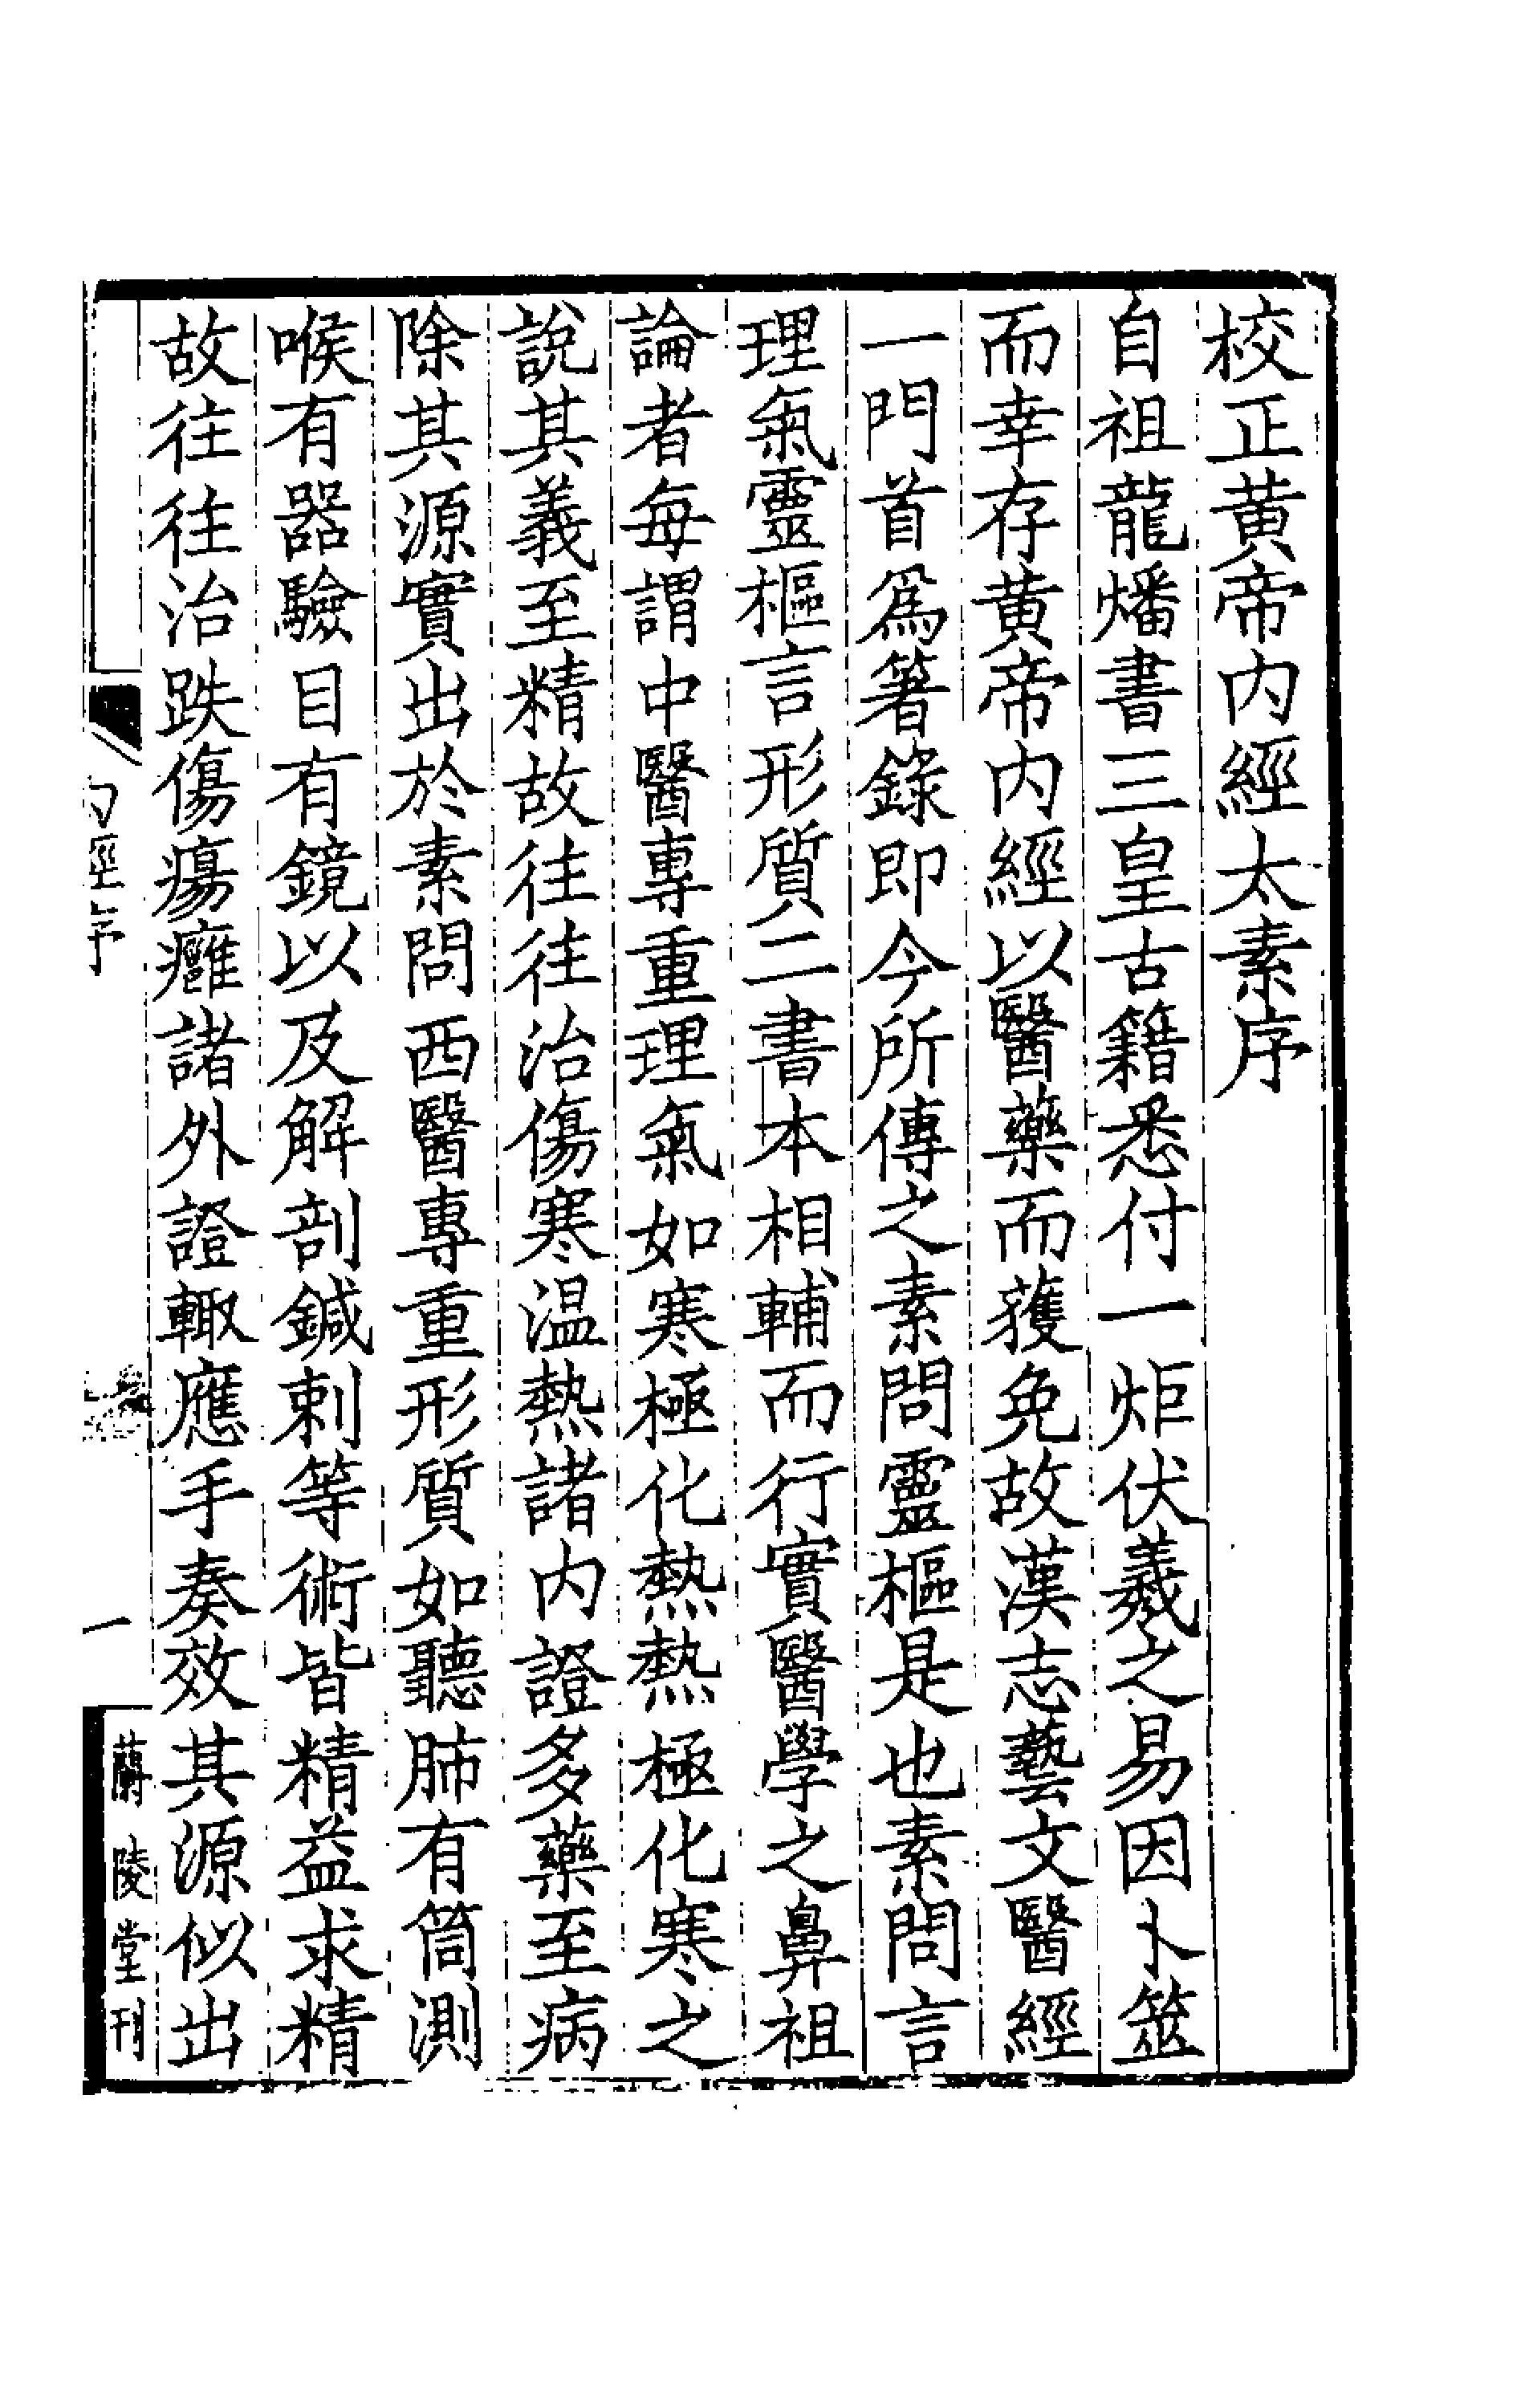 校正黄帝内經太素序
自祖龍燔書三皇古籍悉付一炬伏羲之易因卜筮
而幸存黄帝内經以醫藥而獲免故漢志藝文醫經
一門首爲箸錄即今所傳之素問靈樞是也素問言
理氣靈樞言形質二書本相輔而行實醫學之鼻祖
論者每謂中醫專重理氣如寒極化熱熱極化寒之
說其義至精故往往治傷寒温熱諸内證多藥至病
除其源實出於素問西醫專重形質如聽肺有筒測
喉有器驗目有鏡以及解剖鍼刺等術皆精益求精
故往往治跌傷瘍癰諸外證輙應手奏效其源似出
内經序
一
蘭陵堂刊